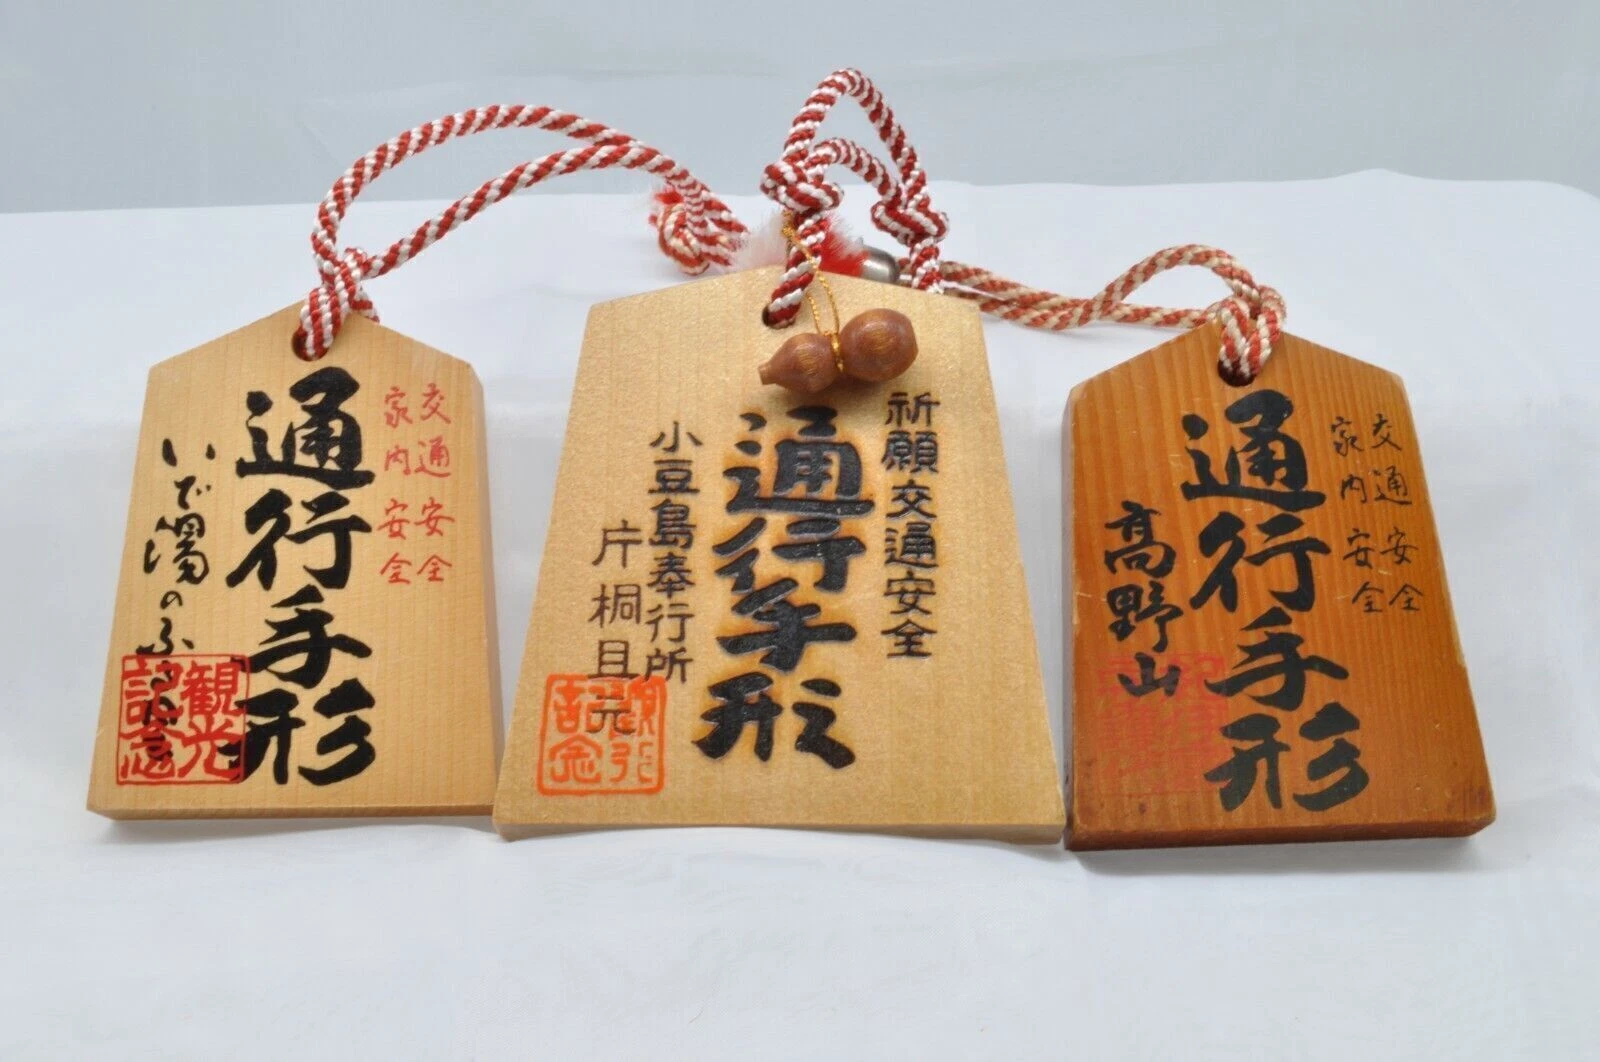 交通安全
家内安全
通行手形
いで湯のふ
観光
記念
祈願交通安全
通行手形
小豆島奉行所
片桐且元
交通安全
家内安全
通行手形
高野山